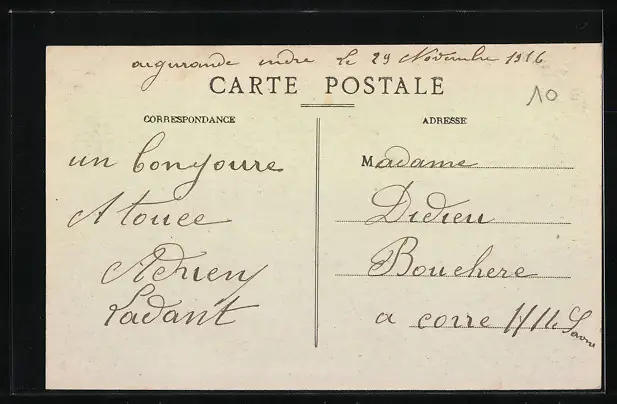 aigurande indre le 29 Novembre 1916
10
CARTE POSTALE
CORRESPONDANCE
ADRESSE
un bonjoure
A touce
Adrien
Ladant
Madame
Didieu
Bouchere
a corre H/te Saone